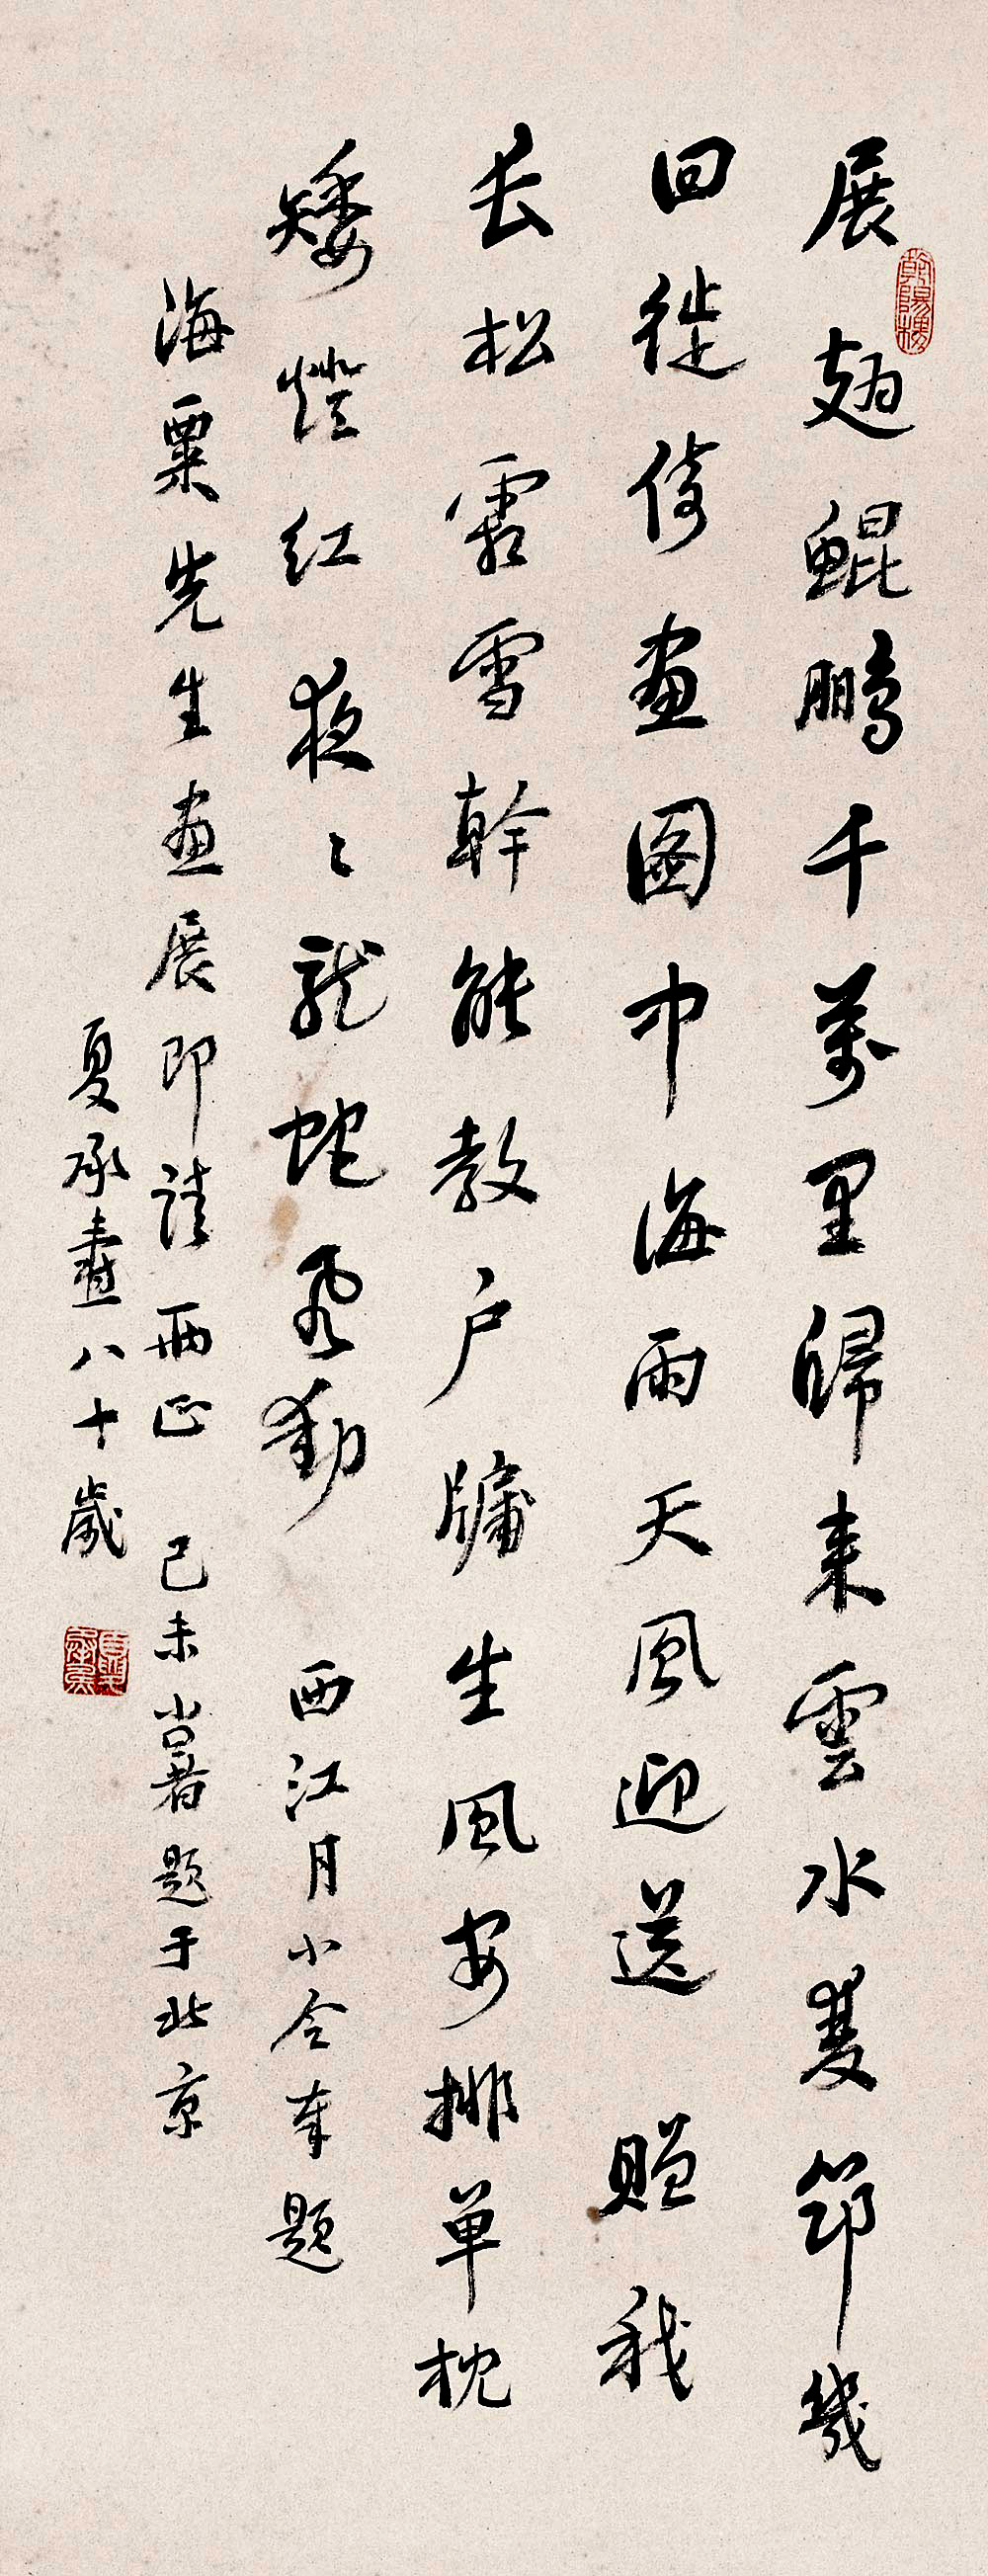 展翅鯤鵬千萬里歸来雲水雙筇幾
回徙倚畫圖中海雨天風迎送 贈我
長松霜雪幹能教户牖生風安排單枕
矮燈紅夜〻龍蛇飛動 西江月小令奉題
海粟先生畫展即請 兩正 己未小暑題于北京
夏承燾八十歲